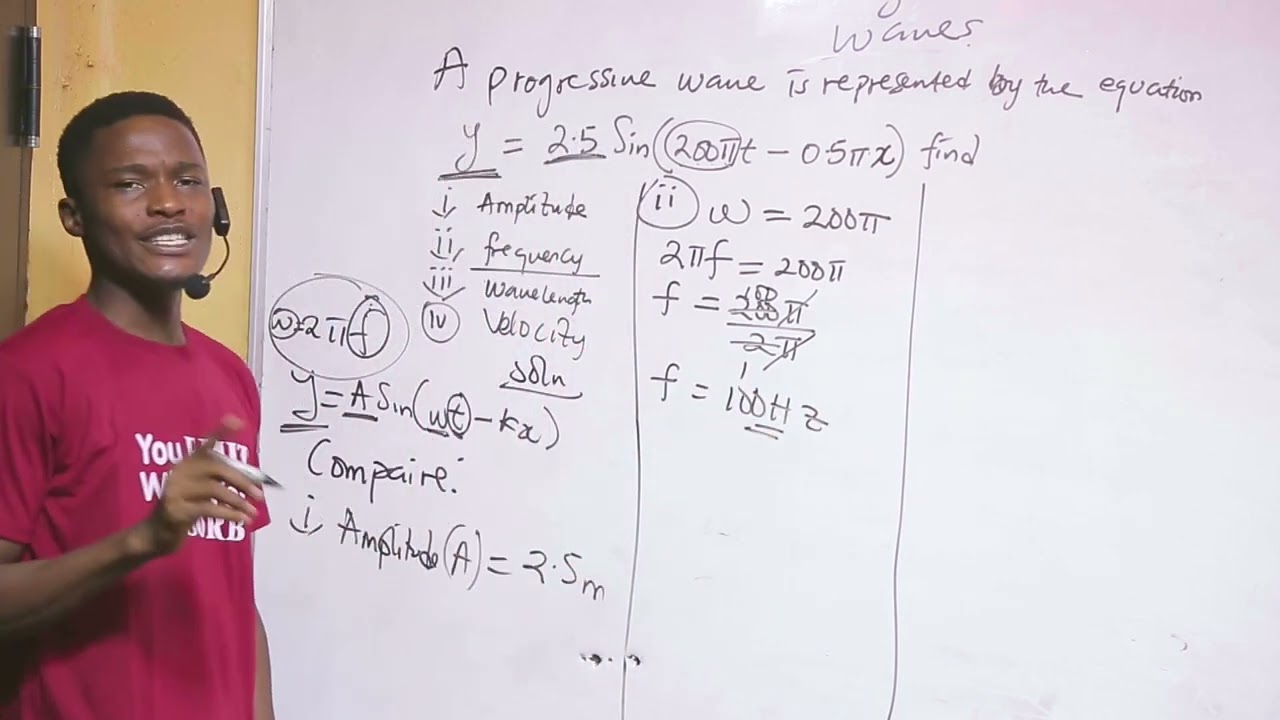 waves
A progressive wave is represented by the equation
y = 2.5 Sin(200πt - 05πx) find
i, Amplitude
ii, frequency
iii, wavelength
iv Velocity
soln
w=2πf
y = A Sin(wt - kx)
Compaire:
i, Amplitude(A) = 2.5m
ii w = 200π
2πf = 200π
f = 200π
100
2π
1
f = 100Hz
You
W